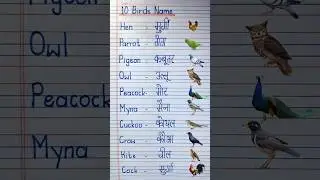 10 Birds Name
Hen - मुर्गी
Parrot - तोता
Pigeon - कबूतर
Owl - उल्लू
Peacock - मोर
Myna - मैना
Cuckoo - कोयल
Crow - कौआ
Kite - चील
Cock - मुर्गा
Owl
Peacock
Myna